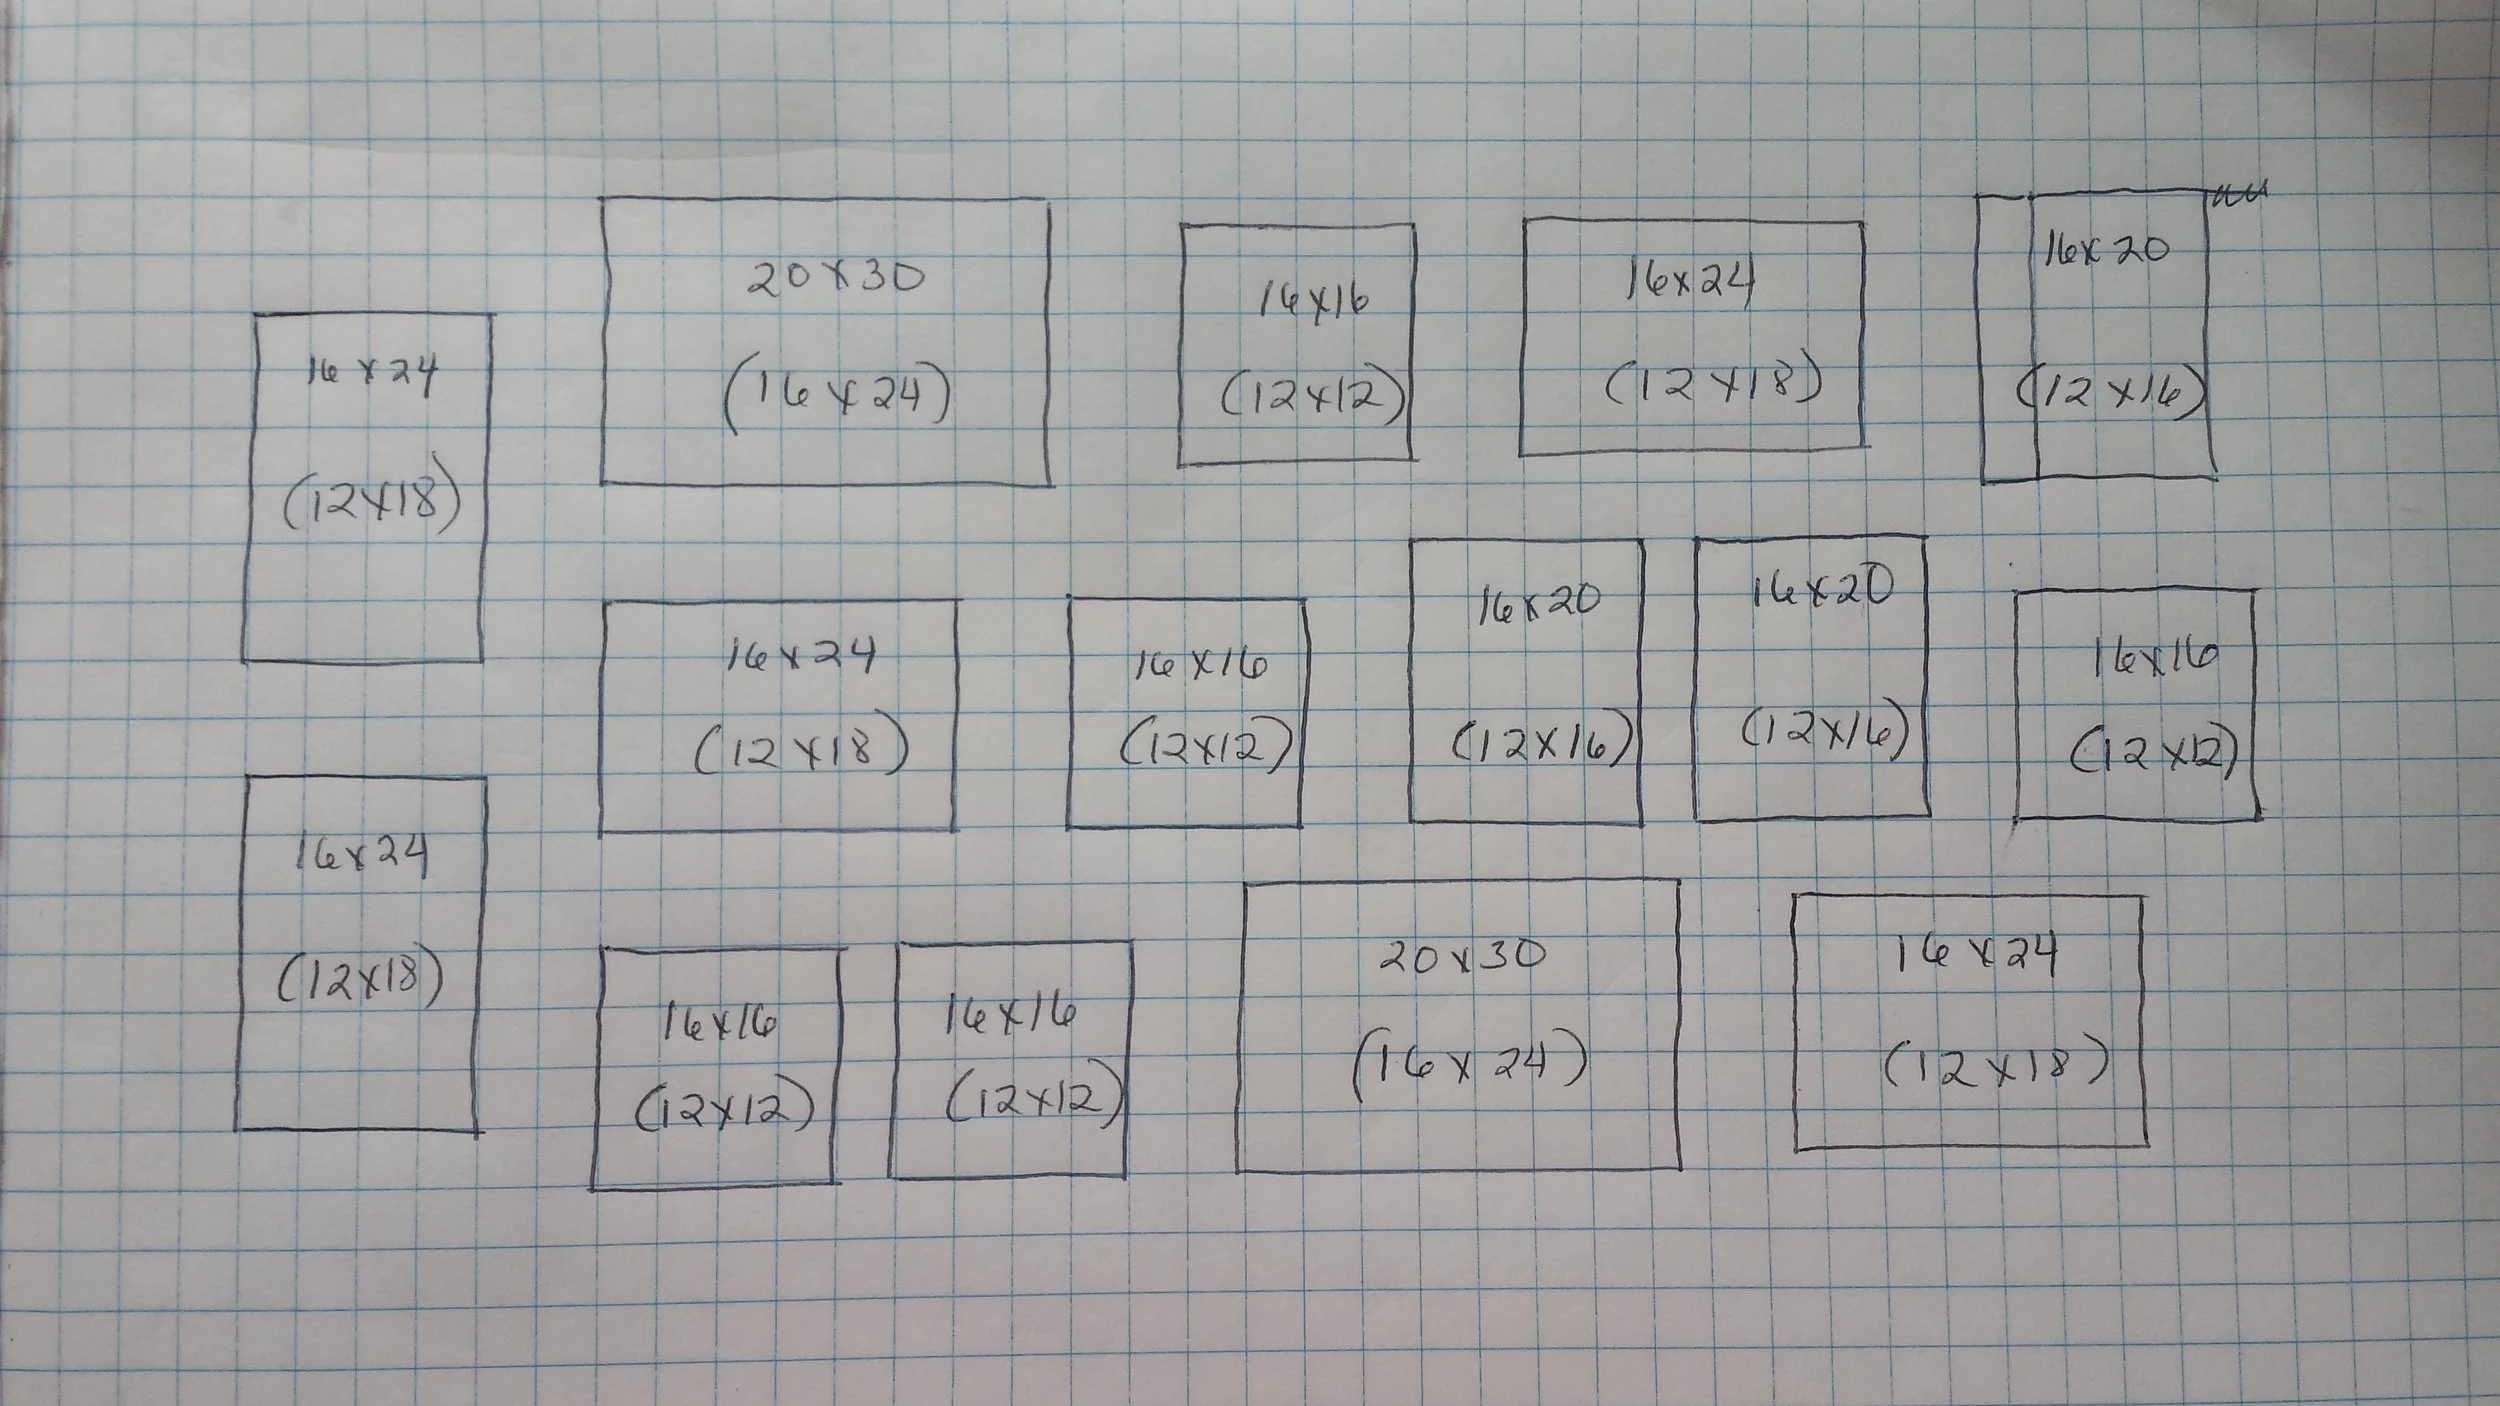 16x24
(12x18)
20x30
(16x24)
16x16
(12x12)
16x24
(12x18)
16x20
(12x16)
16x24
(12x18)
16x16
(12x12)
16x20
(12x16)
16x20
(12x16)
16x16
(12x12)
16x24
(12x18)
16x16
(12x12)
16x16
(12x12)
20x30
(16x24)
16x24
(12x18)